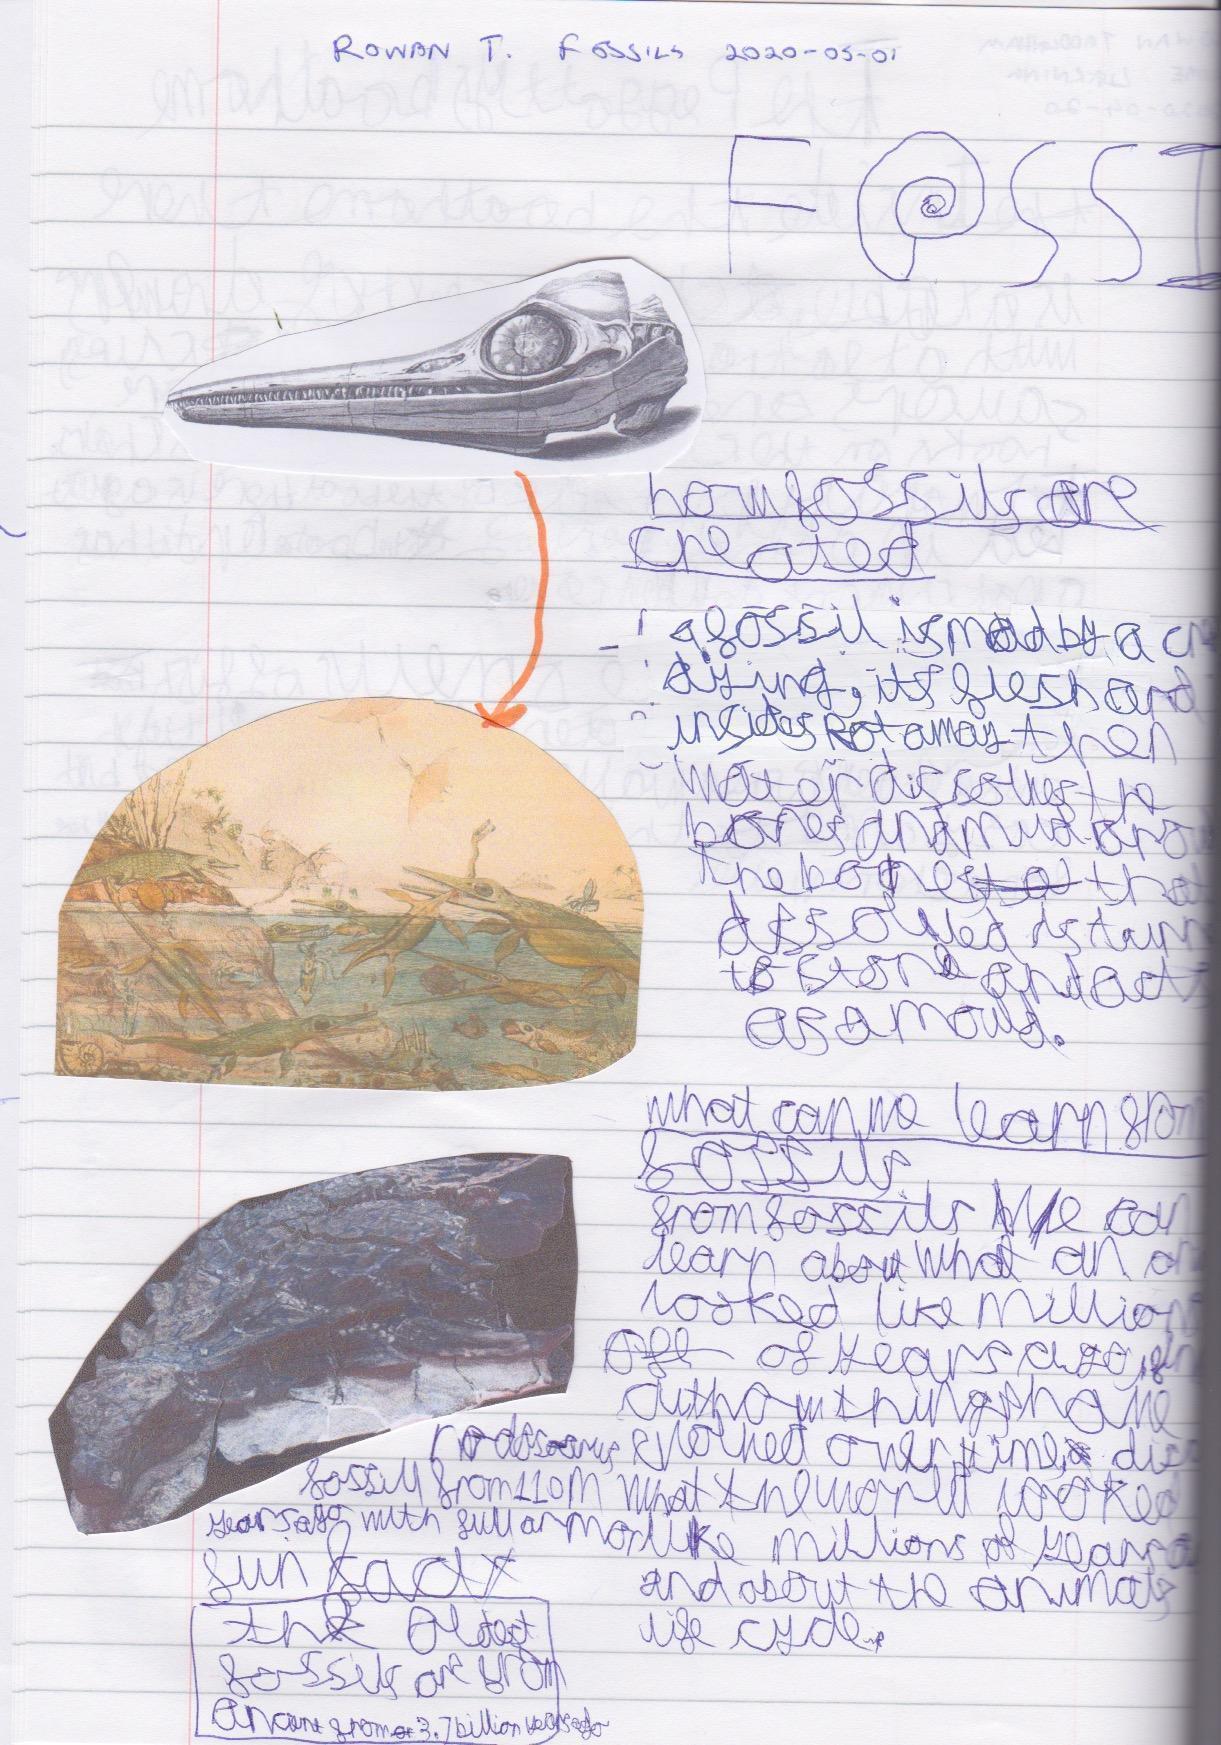 ROWAN T. FOSSILS 2020-05-01
FOSSI
how fossils are
created
a fossil is mad by a cr
diying, its flesh and
insides rot away then
water dissolves the
bones and mud arou
the bones to tha
dissolved is turn
to stone and act
as a mould.
what can we learn from
fossils
from fossils We can
learn about what an an
looked like million
off of years ago,
and how things have
evolved over time,
nodosaurus
what the world looked
fossill from 110M
like millions of years a
years ago with full armor
and about the animals
life cycle.
fun fact
the Oldest
fossils are from
3.7 billion years ago